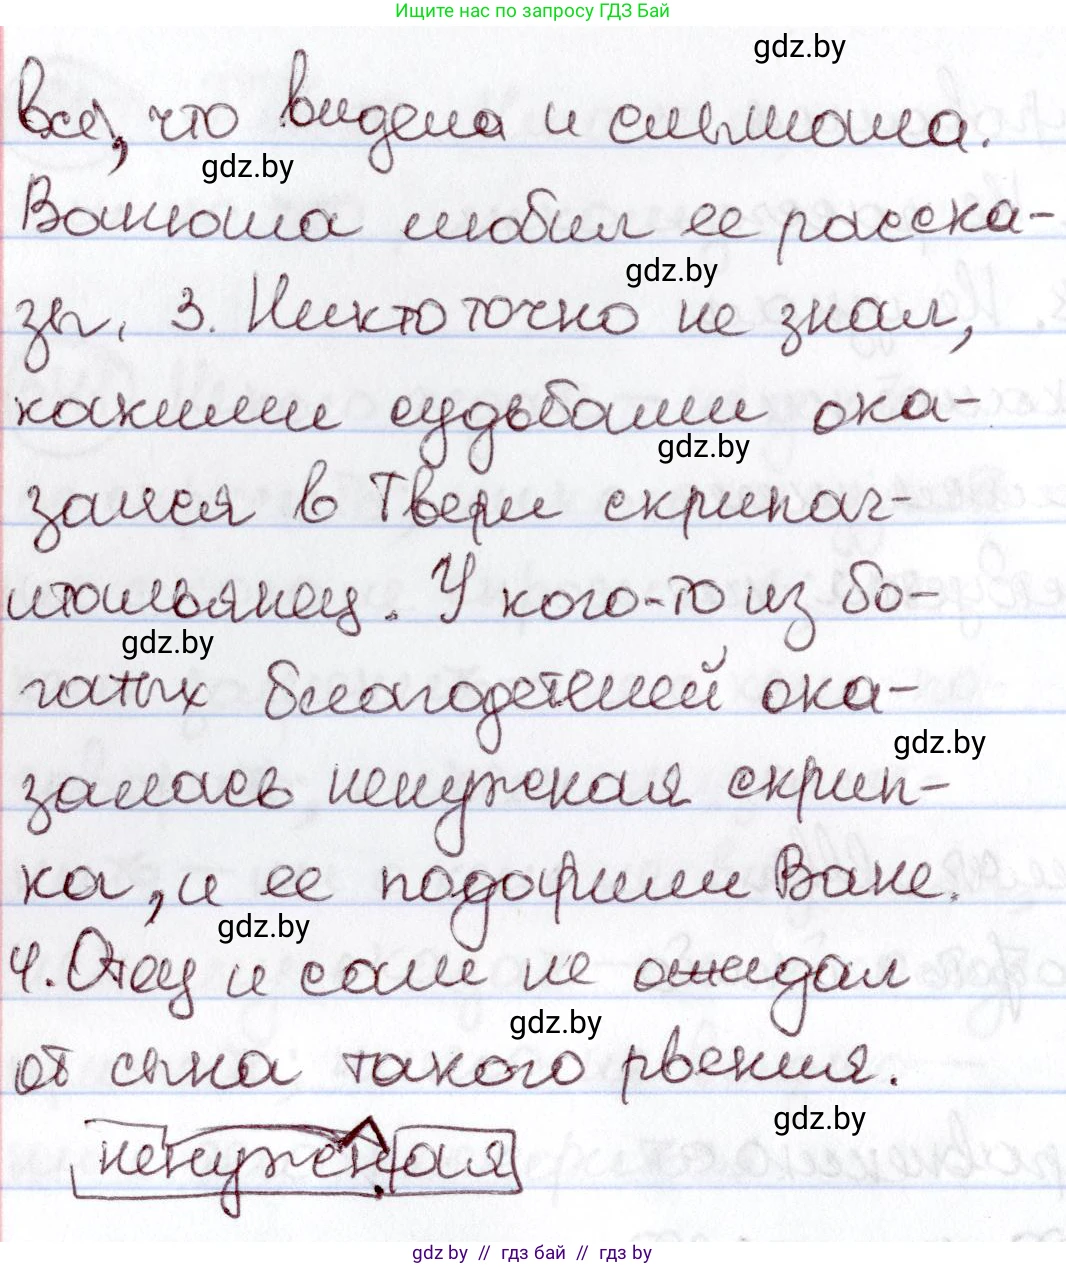 Ищите нас по запросу ГДЗ Бай
gdz.by
все, что видела и слышала.
gdz.by
Ванюша любил ее расска-
gdz.by
зы. 3. Никто точно не знал,
какими судьбами ока-
gdz.by
зался в Твери скрипач-
итальянец. У кого-то из бо-
gdz.by
гатых благодетелей ока-
gdz.by
залась ненужная скрип-
ка, и ее подарили Ване.
gdz.by
4. Отец и сам не ожидал
gdz.by
от сына такого рвения.
gdz.by
ненужная
gdz.by // гдз бай // gdz.by